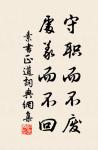 守职而不废
处义而不回
素书正道词典网集